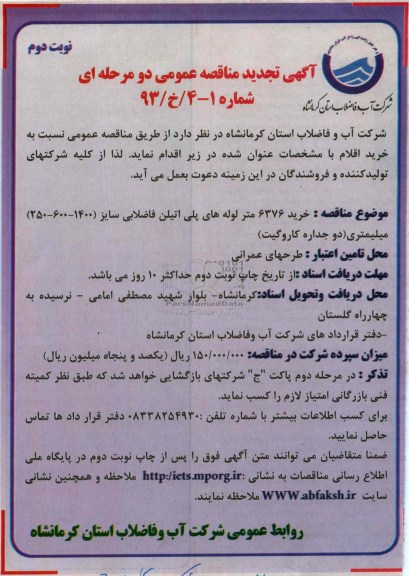 نوبت دوم
آگهی تجدید مناقصه عمومی دو مرحله ای
شماره ۱-۴/خ/۹۳
شرکت آب و فاضلاب استان کرمانشاه
شرکت آب و فاضلاب استان کرمانشاه در نظر دارد از طریق مناقصه عمومی نسبت به
خرید اقلام با مشخصات عنوان شده در زیر اقدام نماید. لذا از کلیه شرکتهای
تولیدکننده و فروشندگان در این زمینه دعوت بعمل می آید.
موضوع مناقصه : خرید ۶۳۷۶ متر لوله های پلی اتیلن فاضلابی سایز (۱۴۰۰-۶۰۰-۲۵۰)
میلیمتری(دو جداره کاروگیت)
محل تامین اعتبار : طرحهای عمرانی
مهلت دریافت اسناد :از تاریخ چاپ نوبت دوم حداکثر ۱۰ روز می باشد.
محل دریافت وتحویل اسناد:کرمانشاه- بلوار شهید مصطفی امامی - نرسیده به
چهارراه گلستان
-دفتر قرارداد های شرکت آب وفاضلاب استان کرمانشاه
میزان سپرده شرکت در مناقصه: ۱۵۰/۰۰۰/۰۰۰ ریال (یکصد و پنجاه میلیون ریال)
تذکر : در مرحله دوم پاکت "ج" شرکتهای بازگشایی خواهد شد که طبق نظر کمیته
فنی بازرگانی امتیاز لازم را کسب نماید.
برای کسب اطلاعات بیشتر با شماره تلفن :۰۸۳۳۸۲۵۴۹۳۰ دفتر قرار داد ها تماس
حاصل نمایید.
ضمنا متقاضیان می توانند متن آگهی فوق را پس از چاپ نوبت دوم در پایگاه ملی
اطلاع رسانی مناقصات به نشانی :http:/iets.mporg.ir ملاحظه و همچنین نشانی
سایت WWW.abfaksh.ir ملاحظه نمایند.
روابط عمومی شرکت آب وفاضلاب استان کرمانشاه